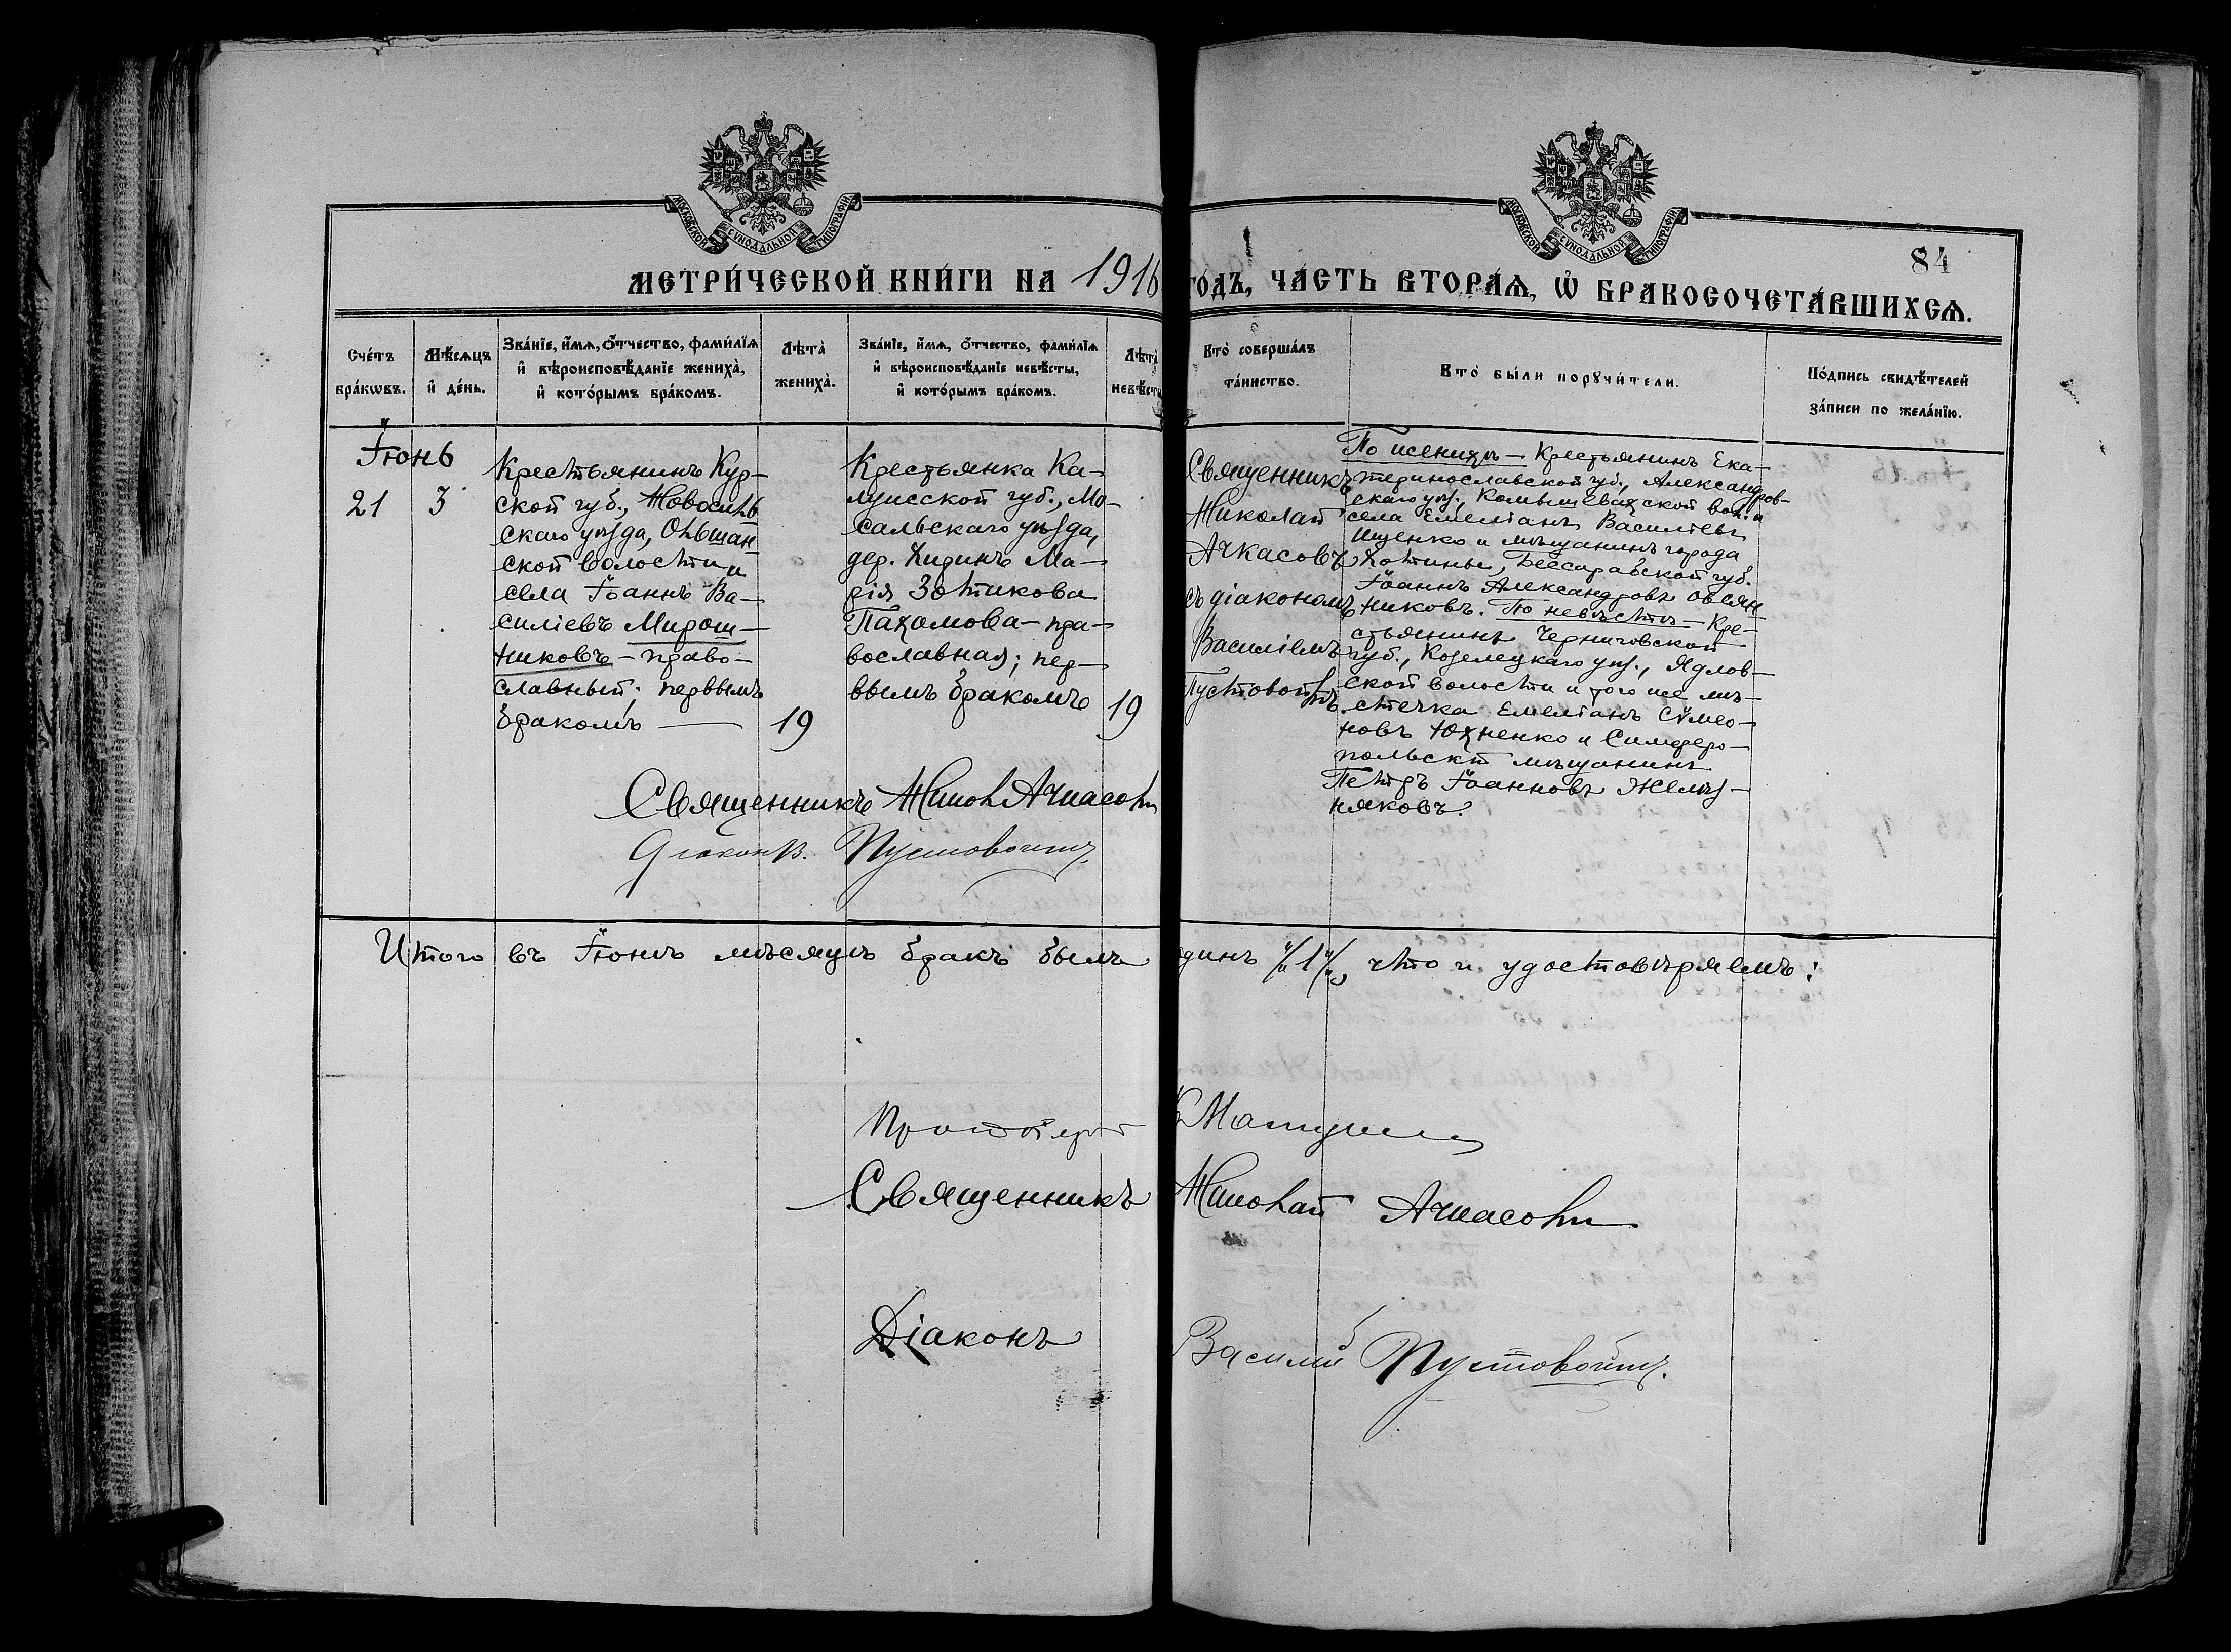 МОСКОВСКОЙ СѴНОДАЛЬНОЙ ТИПОГРАФІИ
МОСКОВСКОЙ СѴНОДАЛЬНОЙ ТИПОГРАФІИ
84
МЕТРИ́ЧЕСКОЙ КНИ́ГИ НА 1916 ГОДЪ, ЧА́СТЬ ВТОРА́Ѧ, Ѡ҆ БРАКОСОЧЕТА́ВШИХСѦ.
Сче́тъ бра́кѡвъ.
Мѣ́сѧцъ и҆ де́нь.
Зва́нїе, и҆́мѧ, ѻ҆́тчество, фами́лїѧ и҆ вѣроисповѣ́данїе жениха̀, и҆ кото́рымъ бра́комъ.
Лѣта̀ жениха̀.
Зва́нїе, и҆́мѧ, ѻ҆́тчество, фами́лїѧ и҆ вѣроисповѣ́данїе невѣ́сты, и҆ кото́рымъ бра́комъ.
Лѣта̀ невѣ́сты
Кто̀ соверша́лъ та́инство.
Кто̀ бы́ли порꙋчи́тели.
По́дпись свидѣ́телей за́писи по жела́нїю.
Іюнь
21
3
Крестьянинъ Кур-
ской губ., Новоскольскаго уѣзда, Ольшан-
ской волости и
села Іоаннъ Ва-
силіевъ Мирош-
никовъ – право-
славный; первымъ
бракомъ
19
Крестьянка Ка-
лужской губ., Мо-
сальскаго уѣзда,
дер. Ма-
рія Зотикова
Пахомова – пра-
вославная; пер-
вымъ бракомъ
19
Священникъ
Николай
Ачкасовъ
съ діакономъ
Василіемъ
Пустовойтъ.
По женихѣ – Крестьянинъ Ека-
теринославской губ., Александров-
скаго уѣз., Камышевахской вол. и
села Емеліанъ Василіевъ
Ищенко и мѣщанинъ города
Хотина, Бессарабской губ.
Іоаннъ Александровъ Овсян-
никовъ. По невѣстѣ – Кре-
стьянинъ Черниговской
губ., Козелецкаго уѣз., Ядлов-
ской волости и того же мѣ-
стечка Емеліанъ Сѵмео-
новъ Юхненко и Симферо-
польскій мѣщанинъ
Петръ Іоанновъ Желѣз-
няковъ.
Священникъ Никол. Ачкасовъ
Діаконъ В. Пустовойтъ.
Итого въ Іюнѣ мѣсяцѣ бракъ былъ одинъ /1/, что и удостовѣряемъ:
Протоіерей
Священникъ Николай Ачкасовъ
Діаконъ Василій Пустовойтъ.